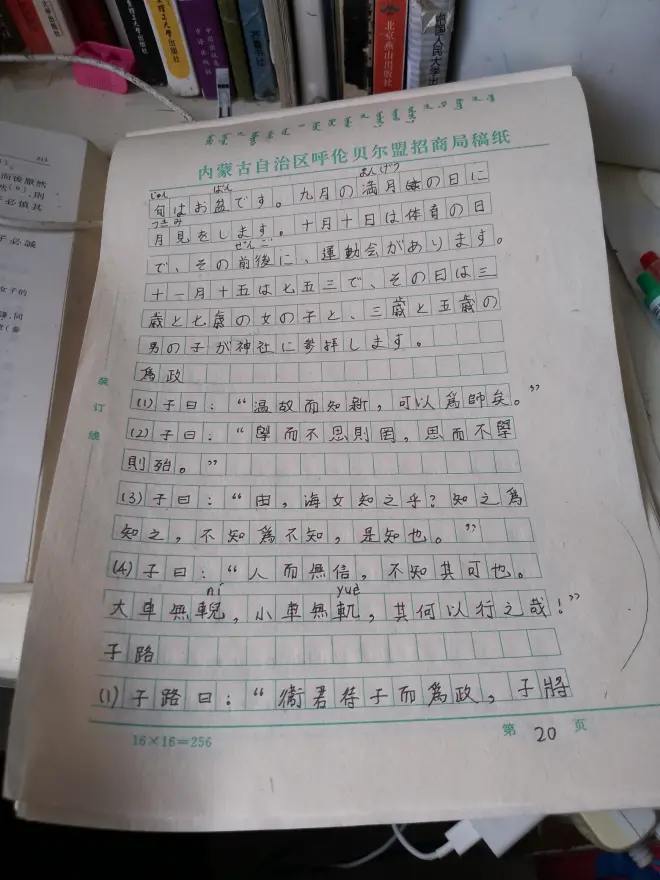 内蒙古自治区呼伦贝尔盟招商局稿纸
旬はお盆です。九月の満月の日に
月見をします。十月十日は体育の日
で、その前後に、運動会があります。
十一月十五は七五三で、その日は三
歳と七歳の女の子と、三歳と五歳の
男の子が神社に参拝します。
為政
(1)子曰：“温故而知新，可以為師矣。”
(2)子曰：“學而不思則罔，思而不學
則殆。”
(3)子曰：“由，海女知之乎？知之為
知之，不知為不知，是知也。”
(4)子曰：“人而無信，不知其可也。
ní yuè
大車無輗，小車無軏，其何以行之哉！”
子路
(1)子路曰：“衛君待子而為政，子將
装订线
16×16=256
第 20 页
北京燕山出版社